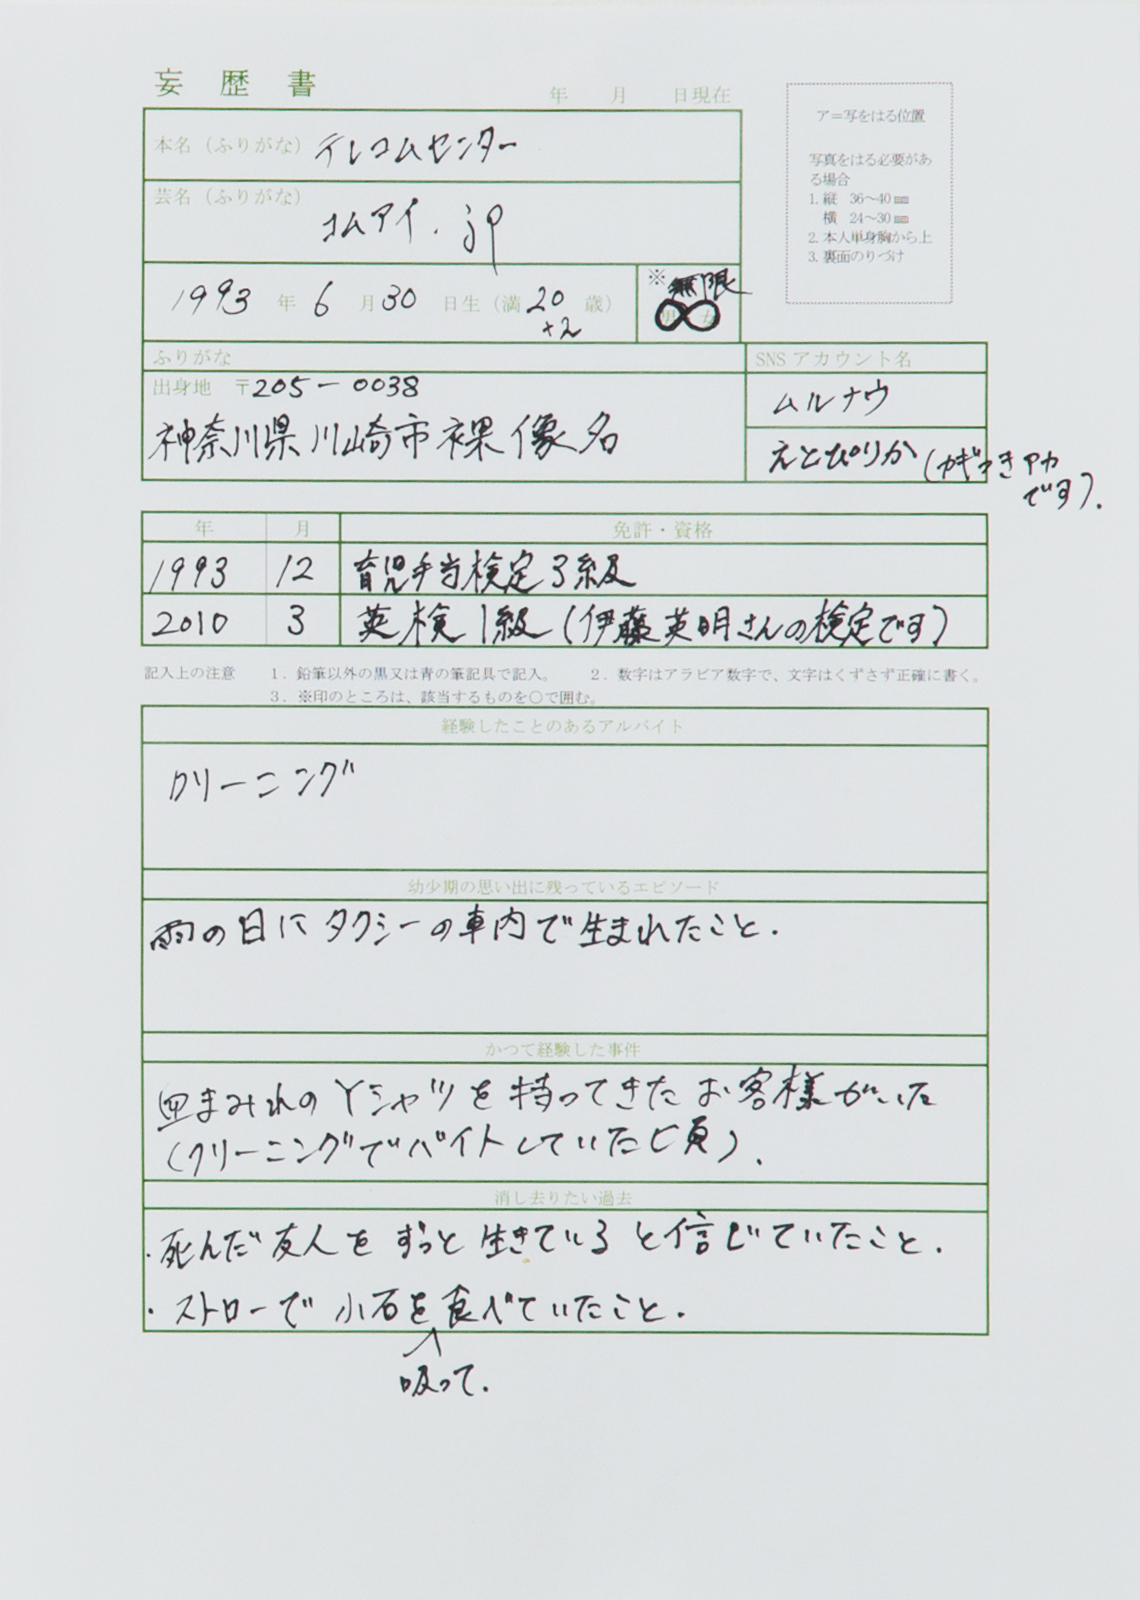 妄歴書
年 月 日現在
ア=写をはる位置
写真をはる必要があ
る場合
1. 縦 36〜40㎜
横 24〜30㎜
2. 本人単身胸から上
3. 裏面のりづけ
本名(ふりがな) テレコムセンター
芸名(ふりがな)
コムアイ.jp
1993 年 6 月 30 日生(満 20 歳)
+2
※ 無限
∞
男 女
ふりがな
出身地 〒205-0038
神奈川県川崎市裸像名
SNS アカウント名
ムルナウ
えとぴりか(カギつきアカ
です).
年 月 免許・資格
1993 12 育児手当検定3級
2010 3 英検1級(伊藤英明さんの検定です)
記入上の注意 1. 鉛筆以外の黒又は青の筆記具で記入。 2. 数字はアラビア数字で、文字はくずさず正確に書く。
3. ※印のところは、該当するものを○で囲む。
経験したことのあるアルバイト
クリーニング
幼少期の思い出に残っているエピソード
雨の日にタクシーの車内で生まれたこと.
かつて経験した事件
血まみれのYシャツを持ってきたお客様がいた
(クリーニングでバイトしていた頃).
消し去りたい過去
・死んだ友人をずっと生きていると信じていたこと.
・ストローで小石を食べていたこと.
吸って.